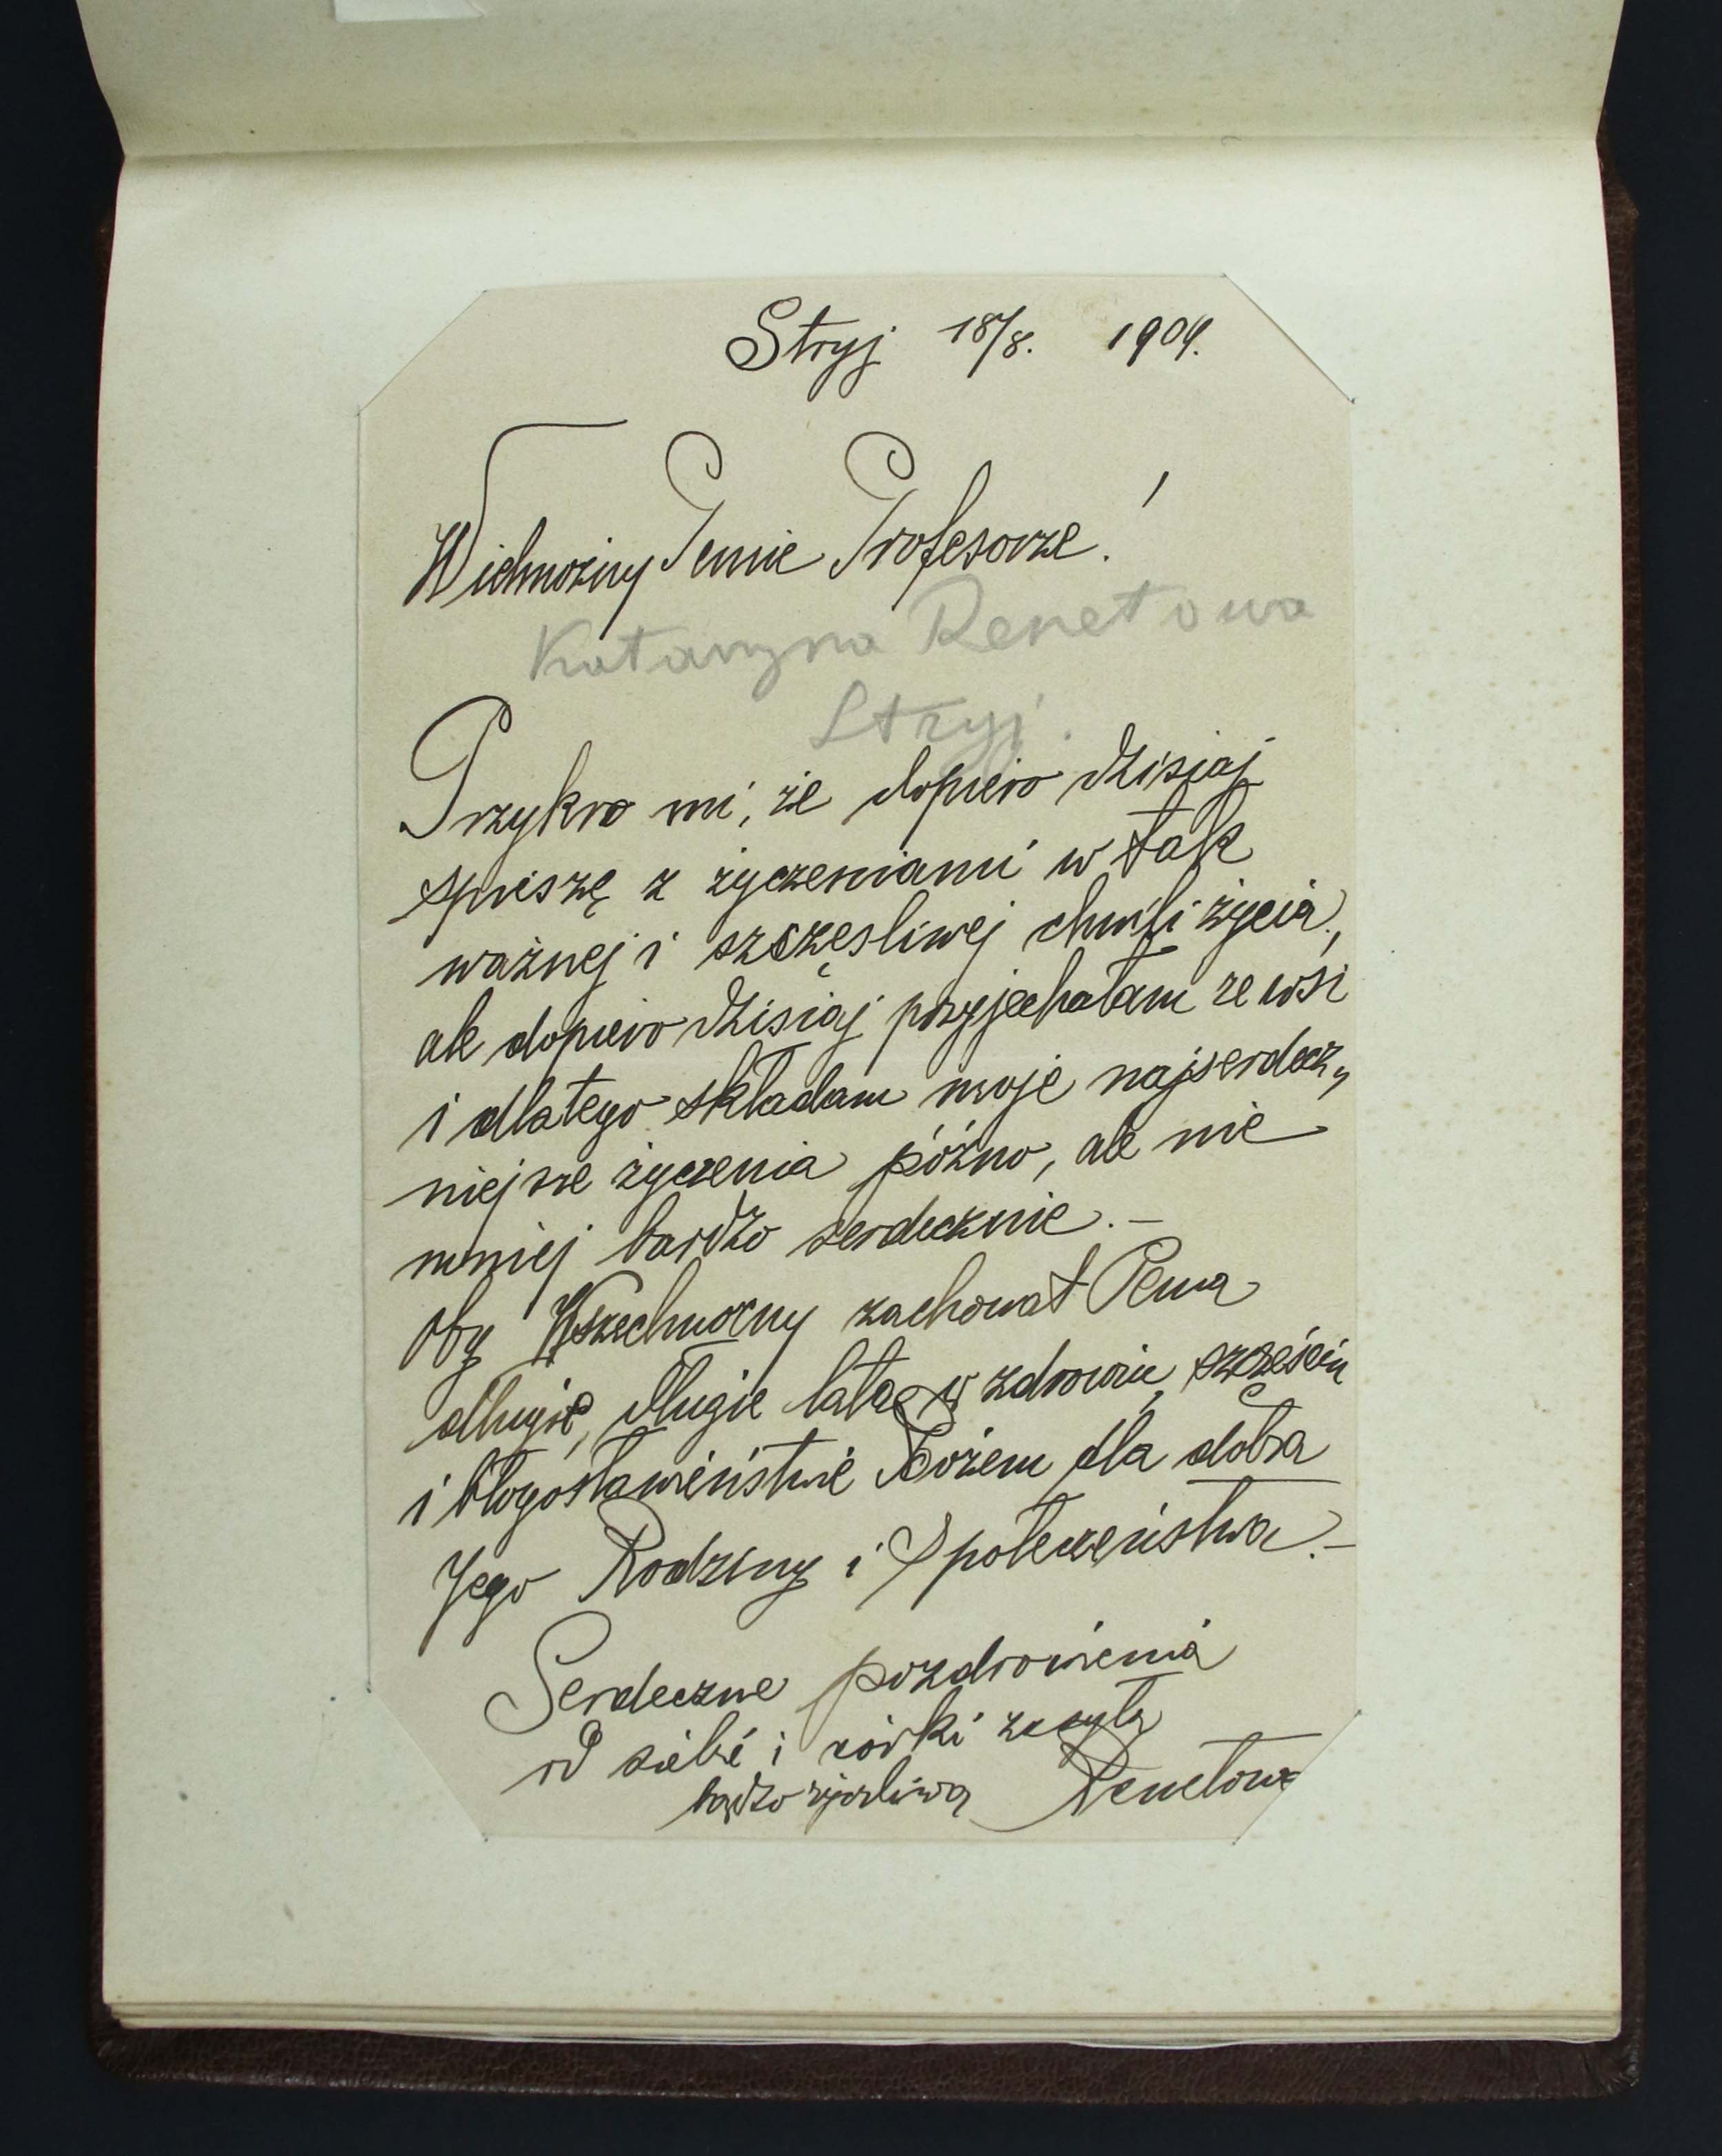 Stryj 18/8. 1904.
Wielmożny Panie Profesorze!
Katarzyna Renetowa
Stryj.
Przykro mi, że dopiero dzisiaj
spieszę z życzeniami w tak
ważnej i szczęsliwej chwili życia,
ale dopiero dzisiaj przyjechałam ze wsi
i dlatego składam moje najserdecz„
niejsze życzenia późno, ale nie
mniej bardzo serdecznie. –
Oby Wszechmocny zachował Pana
długie, długie lata w zdrowiu, szczęściu
i błogosławieństwie Bożem dla dobra
Jego Rodziny i Społeczeństwa. –
Serdeczne pozdrowienia
od siebie i córki zasyła
bardzo życzliwa Renetowa